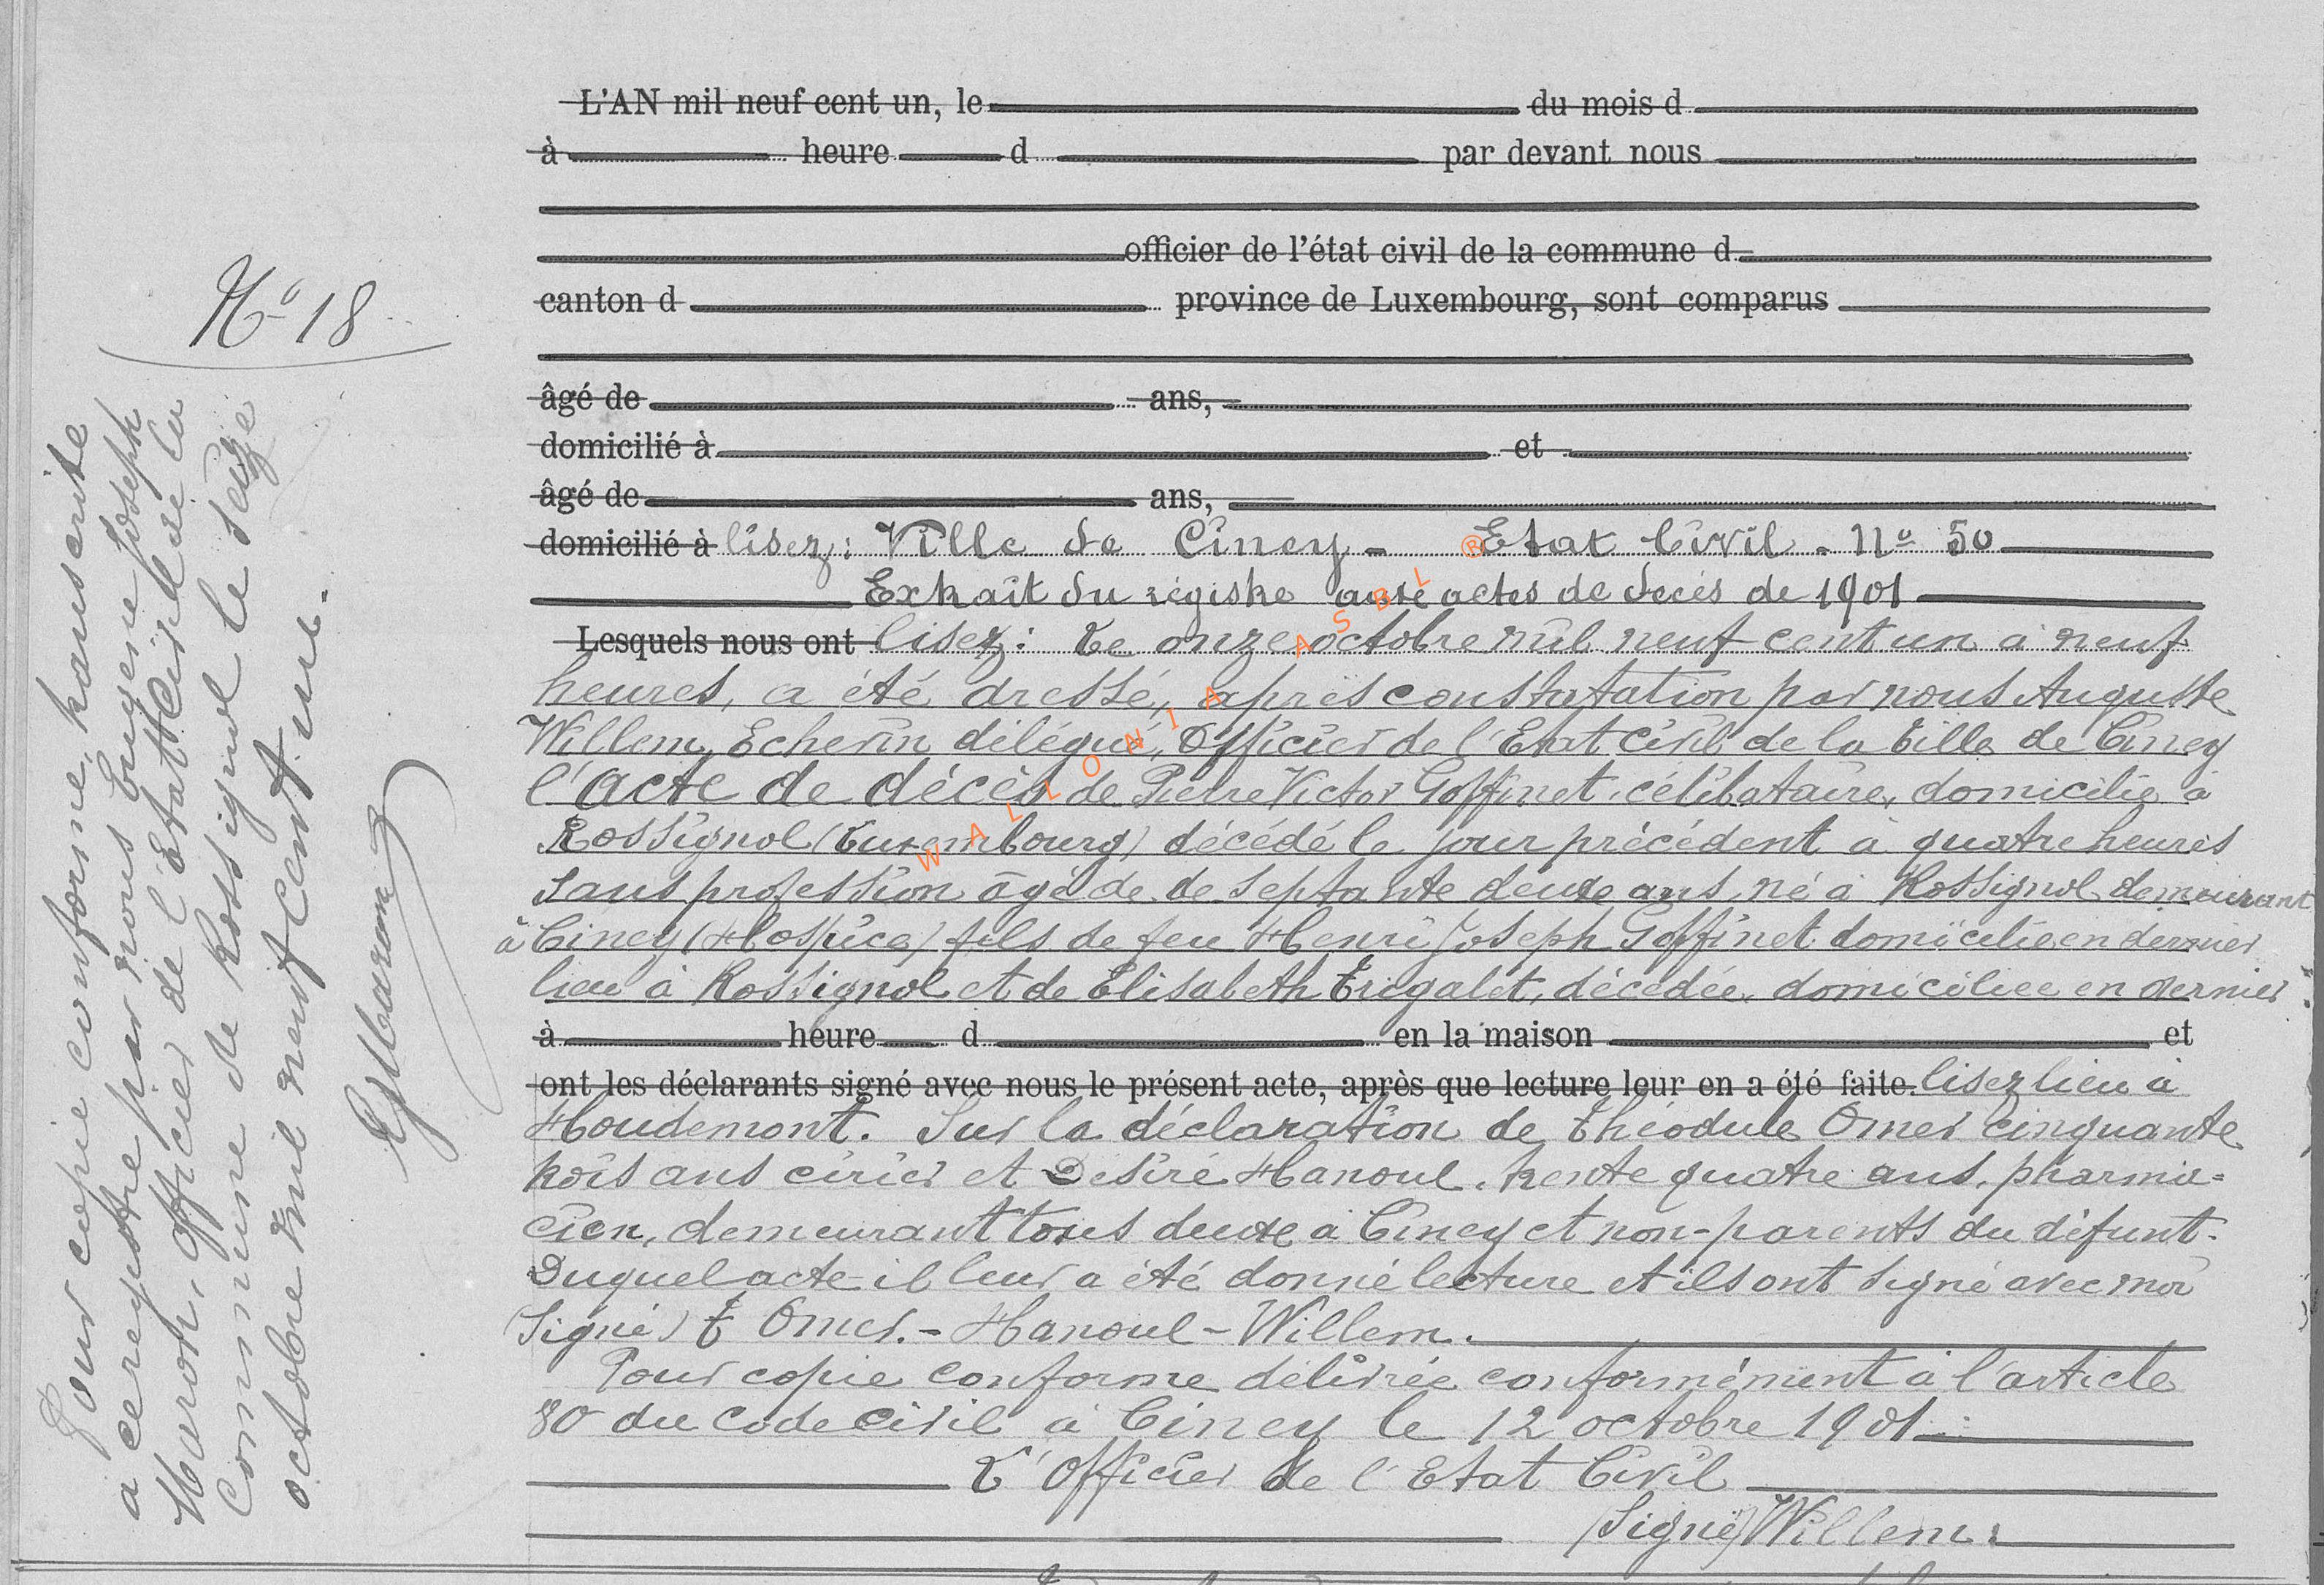 L'AN mil neuf cent un, le du mois d
à heure d par devant nous
officier de l'état civil de la commune d
canton d province de Luxembourg, sont comparus
âgé de ans,
domicilié à et
âgé de ans,
domicilié à lisez: Ville de Ciney - Etat Civil. No 50
Extrait du régistre aux actes de décès de 1901
Lesquels nous ont lisez: Le onze octobre mil neuf cent un à neuf
heures, a été dressé, après constatation par nous Auguste
Willem, Echevin délégué, Officier de l'Etat Civil de la Ville de Ciney
l'acte de décès de Pierre Victor Goffinet, célibataire, domicilié à
Rossignol (Luxembourg) décédé le jour précédent à quatre heures
sans profession âgé de de septante deux ans, né à Rossignol demeurant
à Ciney (Hospice) fils de feu Henri Joseph Goffinet domicilié en dernier
lieu à Rossignol et de Elisabeth Trigalet, décédée, domiciliée en dernier
à heure d en la maison et
ont les déclarants signé avec nous le présent acte, après que lecture leur en a été faite. lisez lieu à
Houdemont. Sur la déclaration de Théodule Omer cinquante
trois ans cirier et Désiré Hanoul, trente quatre ans, pharma=
cien, demeurant tous deux à Ciney et non-parents du défunt.
Duquel acte il leur a été donné lecture et ils ont signé avec moi
(Signé) T Omer. - Hanoul - Willem.
Pour copie conforme délivrée conformément à l'article
80 du Code Civil à Ciney le 12 octobre 1901
L'Officier de l'Etat Civil
(Signé) Willem.
No 18
Pour copie conforme, transcrite
à ce registre par nous Eugène Joseph
Maron, Officier de l'Etat Civil de la
Commune de Rossignol le seize
octobre mil neuf cent un.
EJMaron
WALLONIA ASBL ®